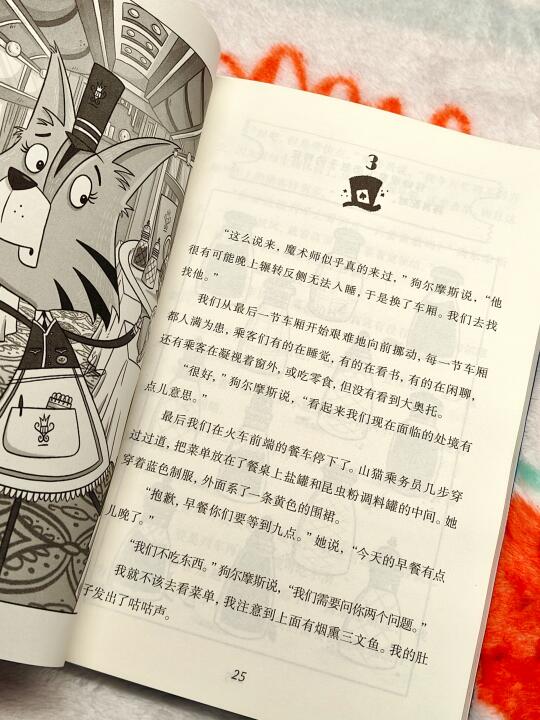 3
“这么说来，魔术师似乎真的来过，”狗尔摩斯说，“他
很有可能晚上辗转反侧无法入睡，于是换了车厢。我们去找
找他。”
我们从最后一节车厢开始艰难地向前挪动，每一节车厢
都人满为患，乘客们有的在睡觉，有的在看书，有的在闲聊，
还有乘客在凝视着窗外，或吃零食，但没有看到大奥托。
“很好，”狗尔摩斯说，“看起来我们现在面临的处境有
点儿意思。”
最后我们在火车前端的餐车停下了。山猫乘务员几步穿
过过道，把菜单放在了餐桌上盐罐和昆虫粉调料罐的中间。她
穿着蓝色制服，外面系了一条黄色的围裙。
“抱歉，早餐你们要等到九点。”她说，“今天的早餐有点
儿晚了。”
“我们不吃东西。”狗尔摩斯说，“我们需要问你两个问题。”
我就不该去看菜单，我注意到上面有烟熏三文鱼。我的肚
子发出了咕咕声。
25